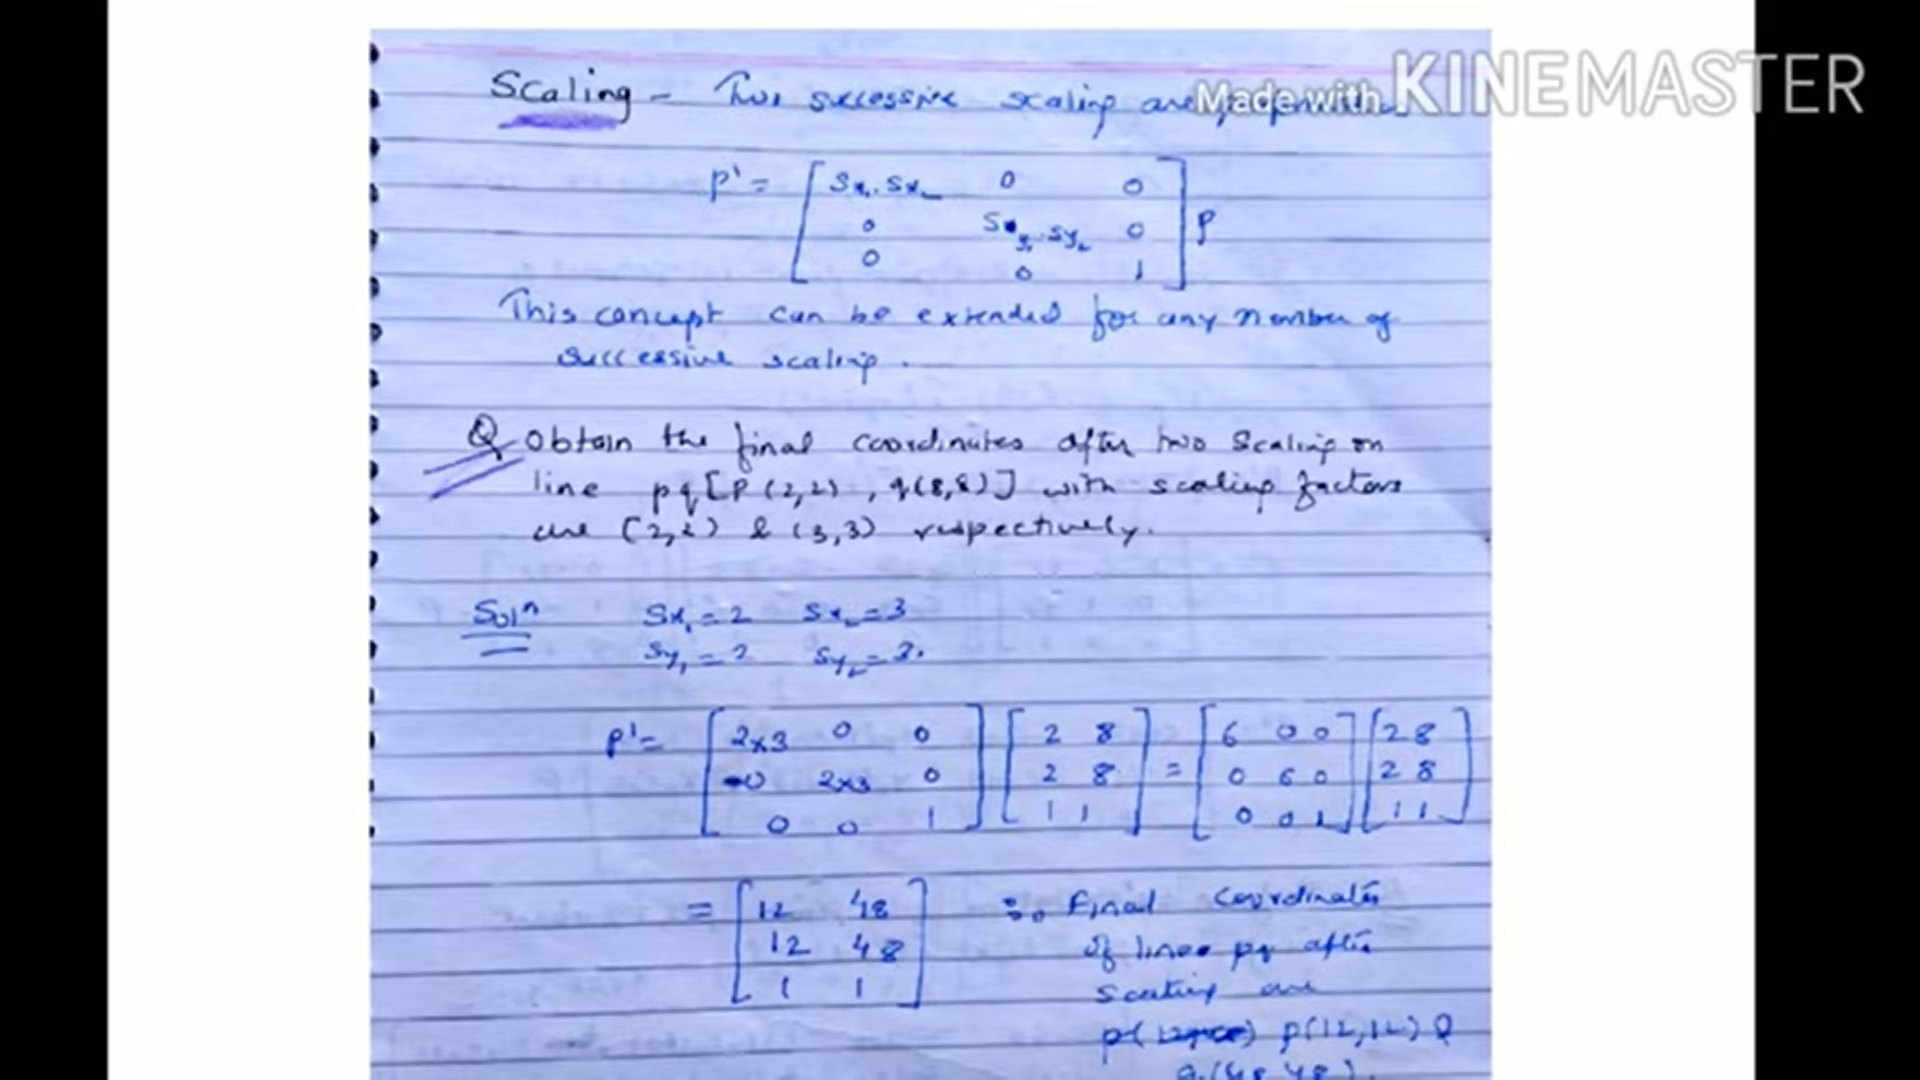 Scaling - Two successive scaling are
Made with KINEMASTER
P' = [ Sx1.Sx2 0 0
0 Sy1.Sy2 0
0 0 1 ] P
This concept can be extended for any number of
successive scaling.
Q Obtain the final coordinates after two scaling on
line pq [P(2,2), q(8,8)] with scaling factors
are (2,2) & (3,3) respectively.
Soln Sx1 = 2 Sx2 = 3
Sy1 = 2 Sy2 = 3.
P' = [ 2x3 0 0 ] [ 2 8 ] = [ 6 0 0 ] [ 2 8 ]
0 2x3 0 2 8 0 6 0 2 8
0 0 1 1 1 0 0 1 1 1
= [ 12 48 ] ∴ Final Coordinates
12 48 of line pq after
1 1 scaling are
P(12,12) &
q(48,48).